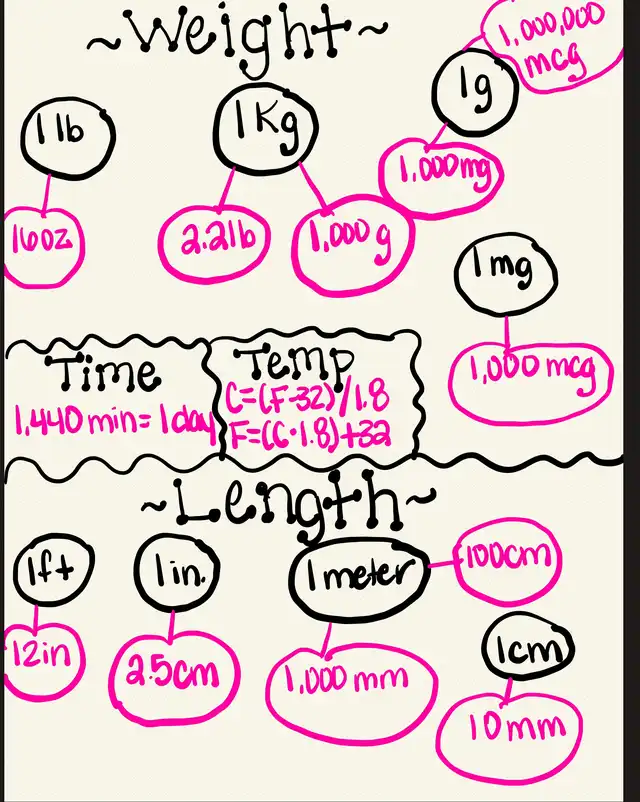 ~Weight~
1,000,000
mcg
1g
1 lb
1Kg
1,000mg
16oz
2.2lb
1,000 g
1mg
1,000 mcg
Time
1,440 min= 1day
Temp
C=(F-32)/1.8
F=(C·1.8)+32
~Length~
1ft
1in.
1meter
100cm
12in
2.5cm
1,000 mm
1cm
10mm